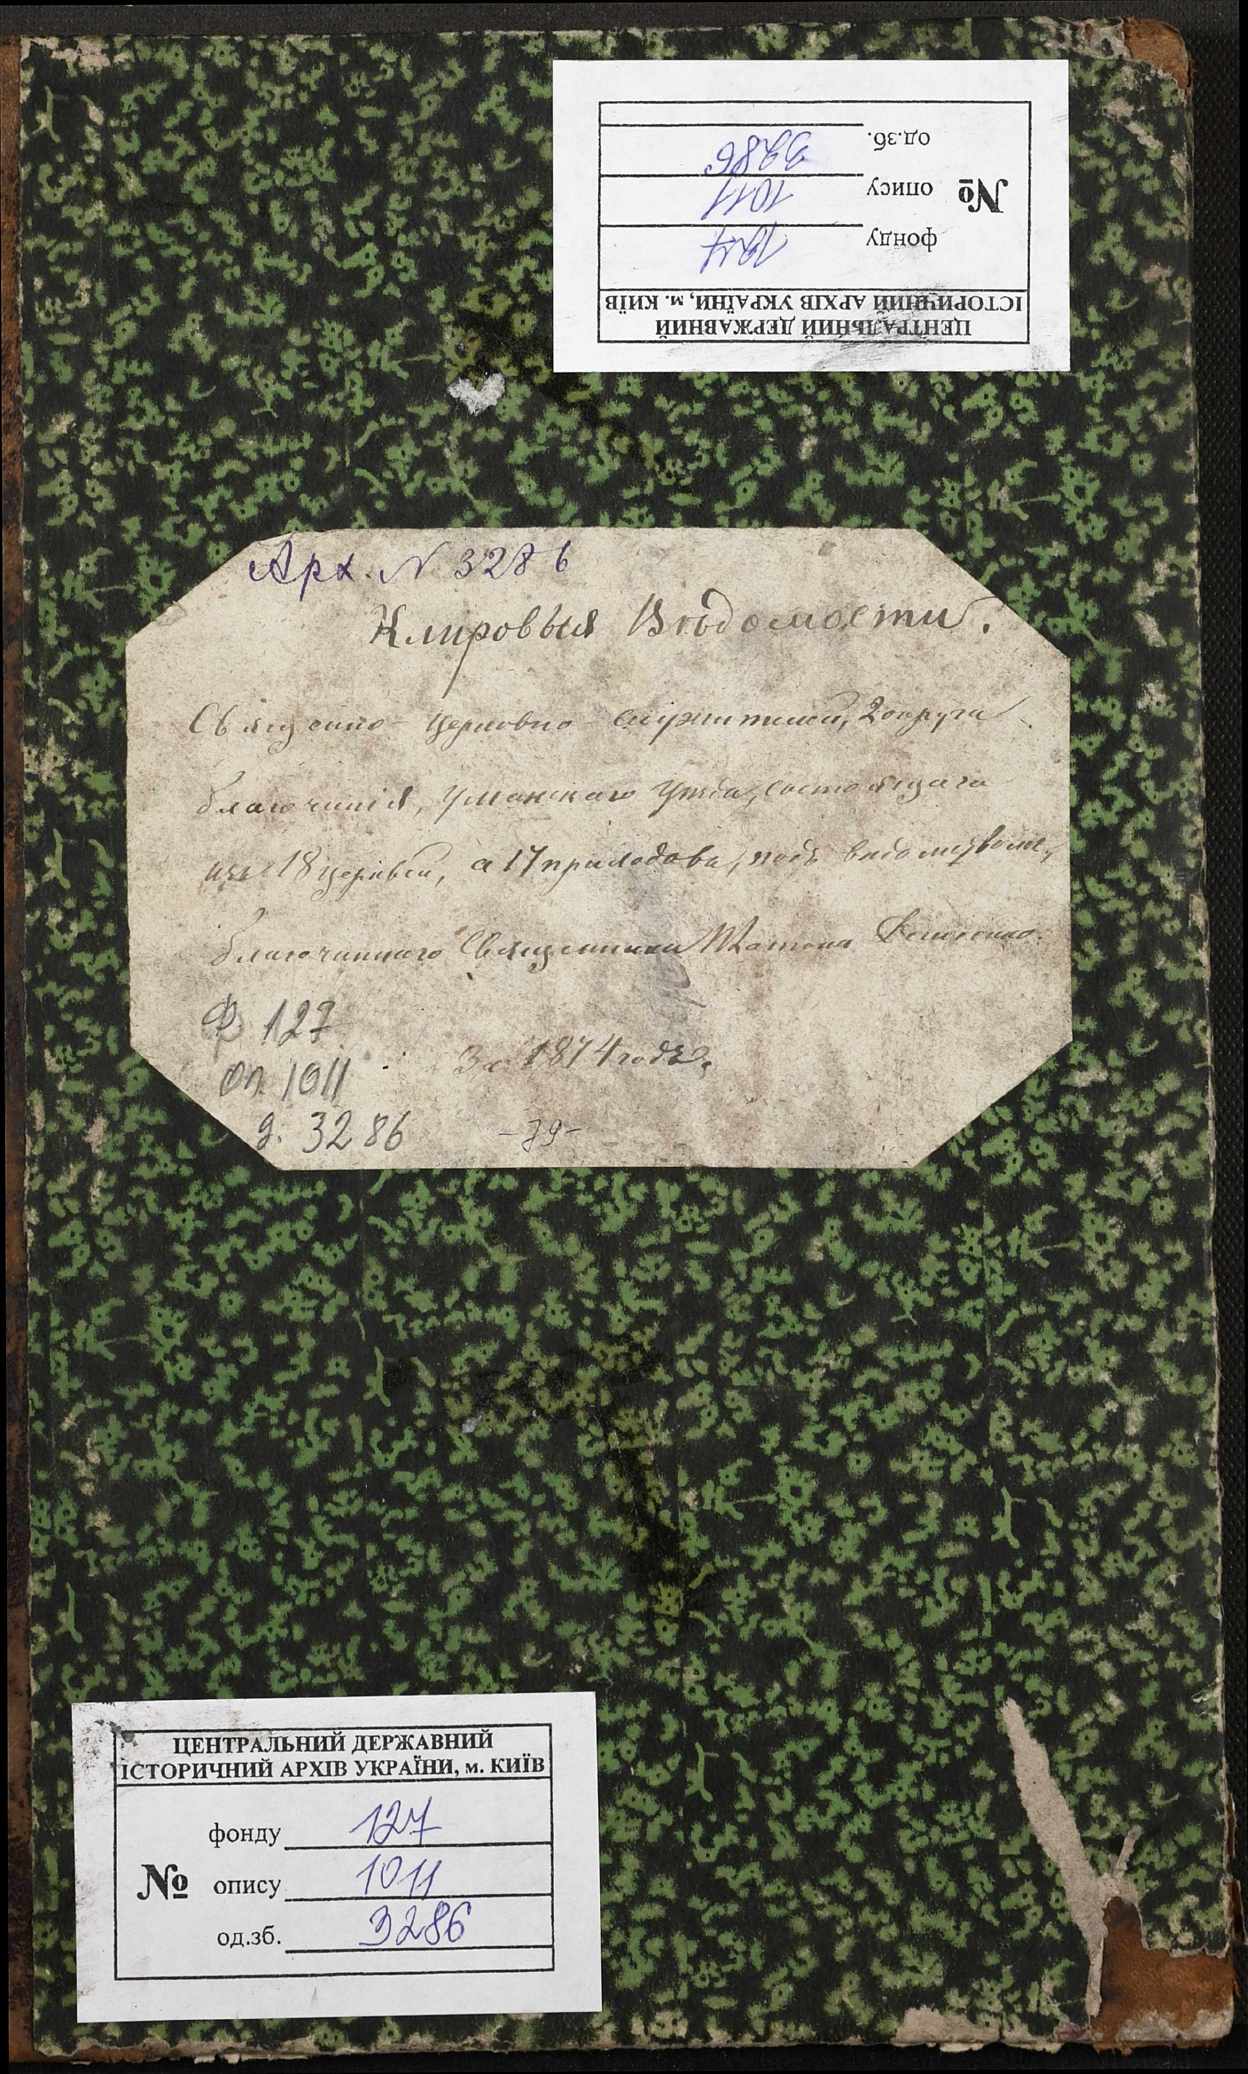 ЦЕНТРАЛЬНИЙ ДЕРЖАВНИЙ
ІСТОРИЧНИЙ АРХІВ УКРАЇНИ, м. КИЇВ
фонду 127
№ опису 1011
од.зб. 3286
Арх. N 3286
Клировыя Вѣдомости.
Священно-церковно-служителей, 2 округа
благочинія, Уманскаго уѣзда, состоящаго
изъ 18 церквей, а 17 приходовъ, подъ вѣдомствомъ,
благочиннаго Священника
За 1874 годъ.
Ф 127
оп. 1011
д. 3286
-79-
ЦЕНТРАЛЬНИЙ ДЕРЖАВНИЙ
ІСТОРИЧНИЙ АРХІВ УКРАЇНИ, м. КИЇВ
фонду 127
№ опису 1011
од.зб. 3286